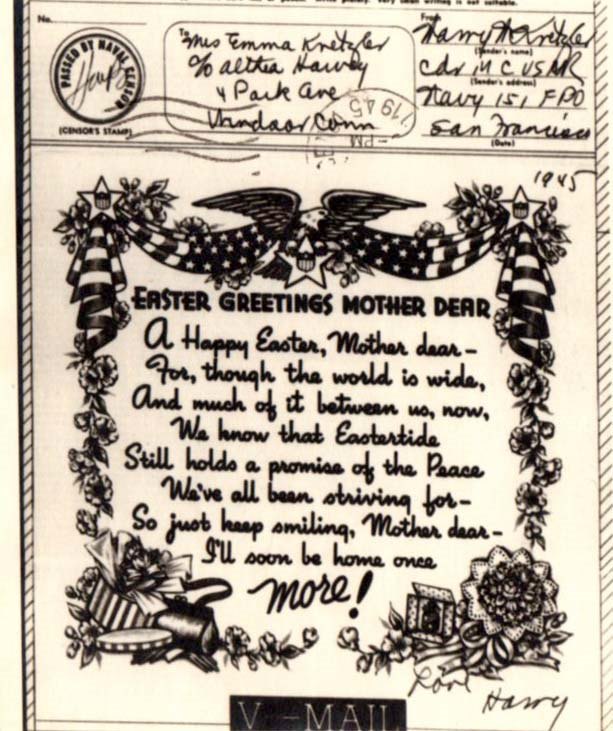 Very small writing is not suitable.
No.
To
Mrs Emma Kretzler
c/o Althea Harvey
4 Park Ave
Windsor, Conn
From
Harry H Kretzler
(Sender's name)
Cdr MC USNR
(Sender's address)
Navy 151, FPO
San Francisco
(Date)
PASSED BY NAVAL CENSOR
(CENSOR'S STAMP)
1945
PM
1945
EASTER GREETINGS MOTHER DEAR
A Happy Easter, Mother dear–
For, though the world is wide,
And much of it between us, now,
We know that Eastertide
Still holds a promise of the Peace
We've all been striving for–
So just keep smiling, Mother dear–
I'll soon be home once
more!
Love
Harry
V -MAIL